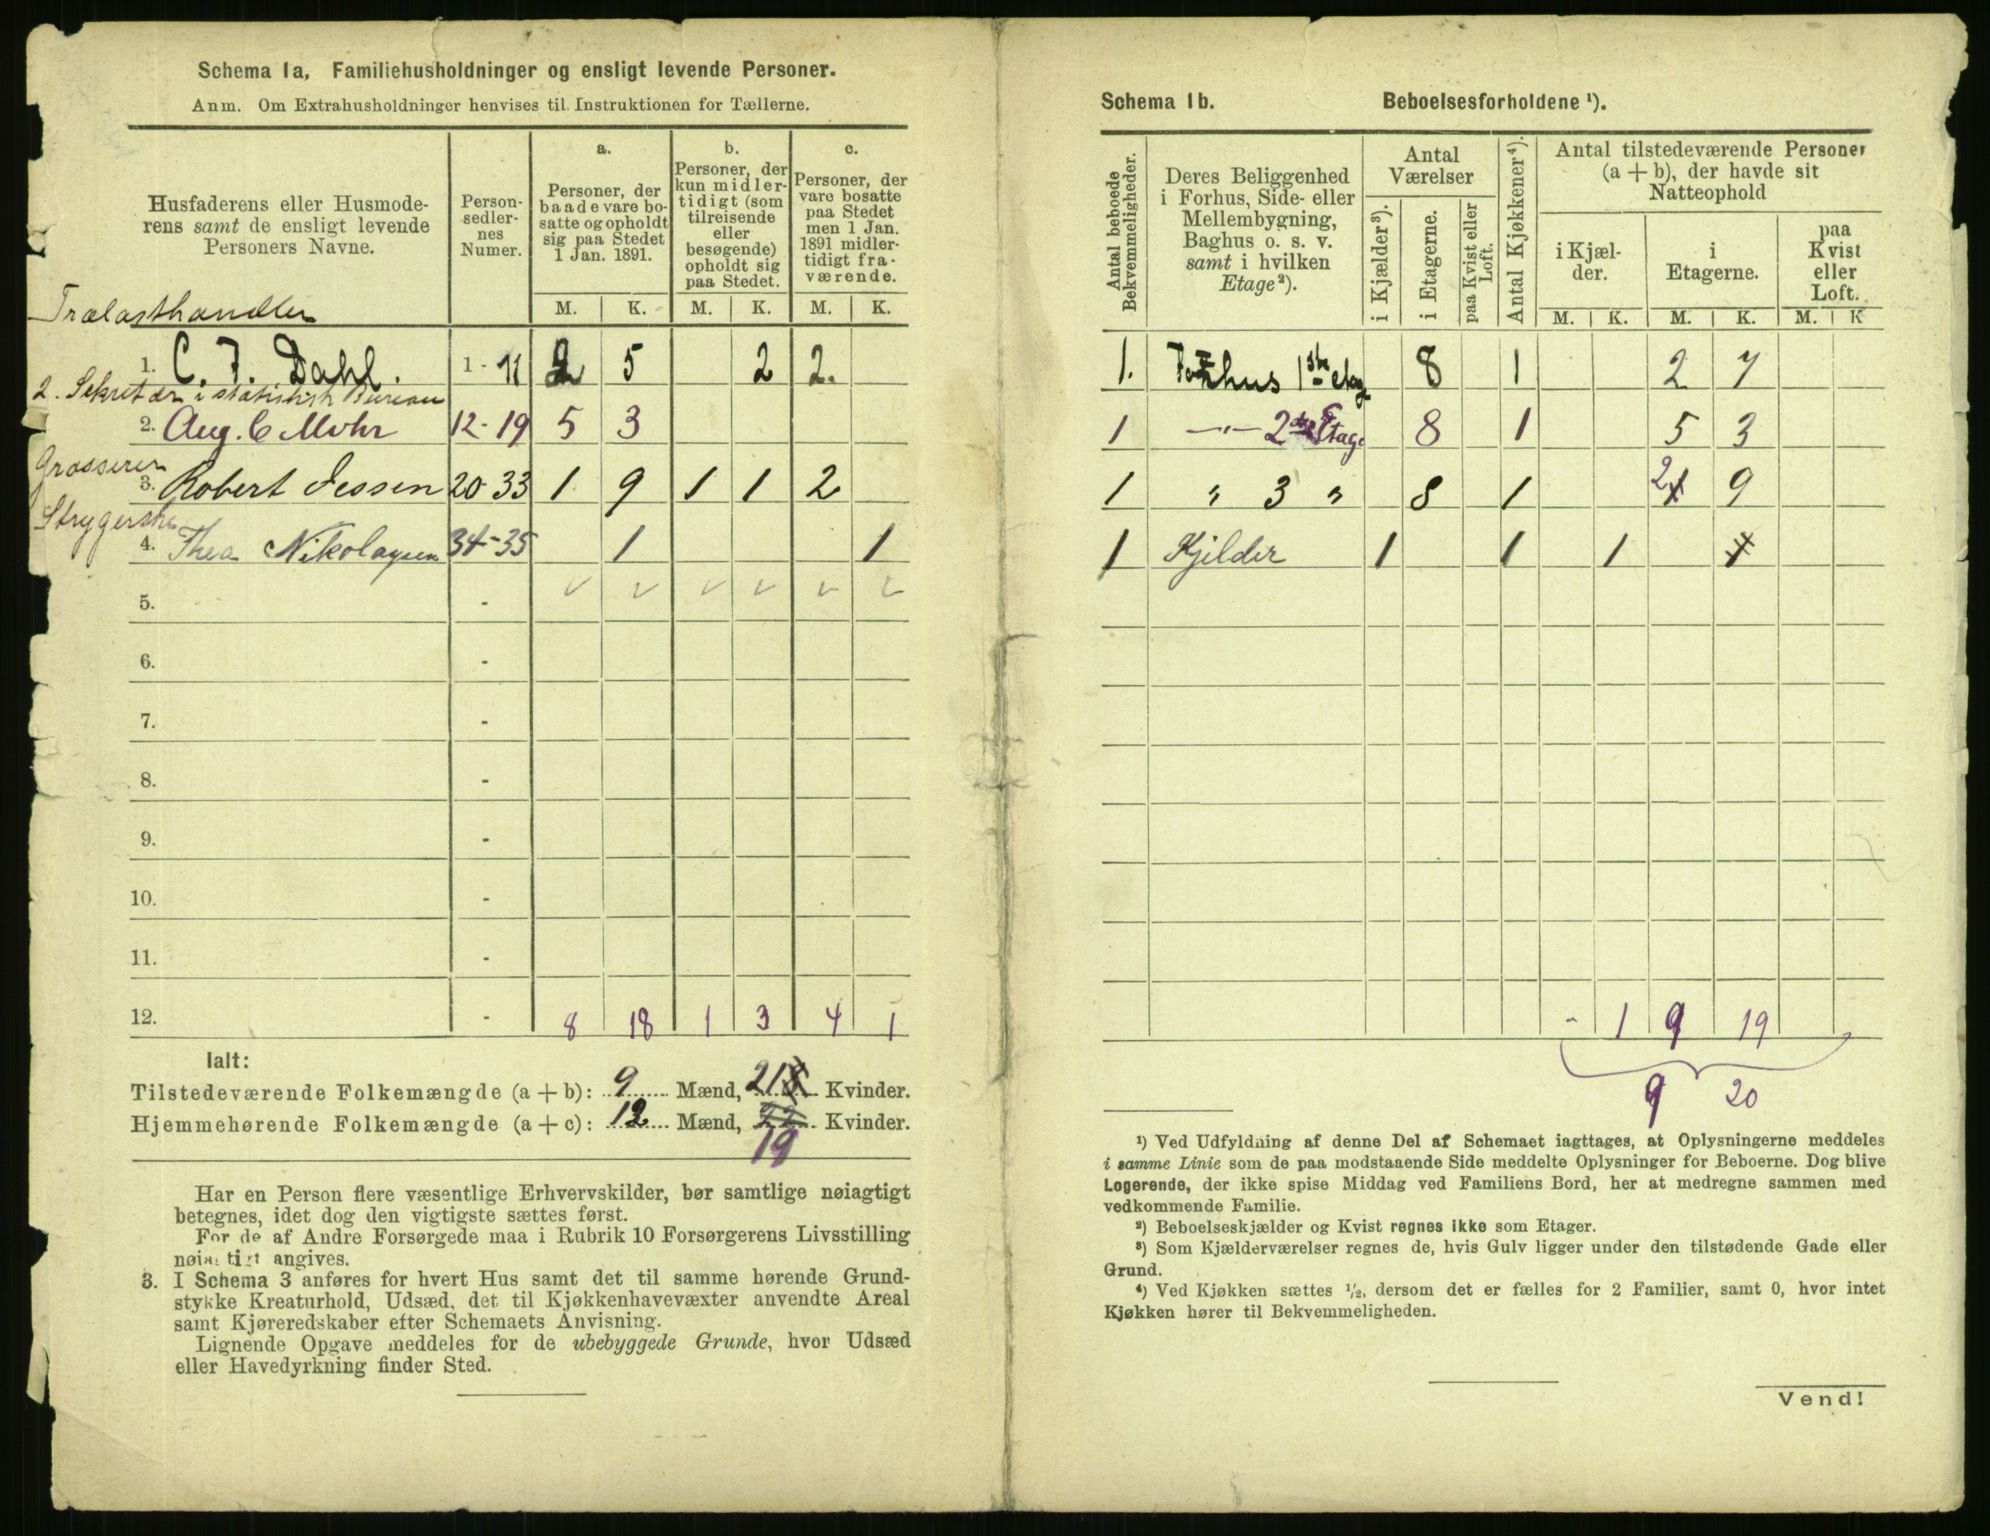 Schema 1a, Familiehusholdninger og ensligt levende Personer.
Anm. Om Extrahusholdninger henvises til Instruktionen for Tællerne.
Husfaderens eller Husmoderens samt de ensligt levende Personers Navne.
Personsedlernes Numer.
a.
Personer, der baade vare bosatte og opholdt sig paa Stedet 1 Jan. 1891.
b.
Personer, der kun midlertidigt (som tilreisende eller besøgende) opholdt sig paa Stedet.
c.
Personer, der vare bosatte paa Stedet men 1 Jan. 1891 midlertidigt fraværende.
M. K. M. K. M. K.
Trælasthandler
1. C. F. Dahl. 1 - 11 2 5 2 2.
2. Sekretær i statistisk Bureau
2. Aug. C Mohr 12 - 19 5 3
Grosserer
3. Robert Jessen 20 - 33 1 9 1 1 2
Strygerske
4. Thea Nikolaysen 34 - 35 1 1
5. -
6. -
7. -
8. -
9. -
10. -
11. -
12. - 8 18 1 3 4 1
Ialt:
Tilstedeværende Folkemængde (a + b): 9 Mænd, 21 Kvinder.
Hjemmehørende Folkemængde (a + c): 12 Mænd, 22 Kvinder.
19
Har en Person flere væsentlige Erhvervskilder, bør samtlige nøiagtigt
betegnes, idet dog den vigtigste sættes først.
For de af Andre Forsørgede maa i Rubrik 10 Forsørgerens Livsstilling
nøiagtigt angives.
3. I Schema 3 anføres for hvert Hus samt det til samme hørende Grund-
stykke Kreaturhold, Udsæd, det til Kjøkkenhavevæxter anvendte Areal
samt Kjøreredskaber efter Schemaets Anvisning.
Lignende Opgave meddeles for de ubebyggede Grunde, hvor Udsæd
eller Havedyrkning finder Sted.
Schema 1b. Beboelsesforholdene ¹).
Antal beboede Bekvemmeligheder.
Deres Beliggenhed i Forhus, Side- eller Mellembygning, Baghus o. s. v. samt i hvilken Etage ²).
Antal Værelser
i Kjælder ³).
i Etagerne.
paa Kvist eller Loft.
Antal Kjøkkener ⁴).
Antal tilstedeværende Personer (a + b), der havde sit Natteophold
i Kjælder.
i Etagerne.
paa Kvist eller Loft.
M. K. M. K. M. K
1. Forhus 1ste etag 8 1 2 7
1 -"- 2den Etage 8 1 5 3
1 " 3 " 8 1 2 9
1 Kjelder 1 1 1 1
- 1 9 19
9 20
¹) Ved Udfyldning af denne Del af Schemaet iagttages, at Oplysningerne meddeles
i samme Linie som de paa modstaaende Side meddelte Oplysninger for Beboerne. Dog blive
Logerende, der ikke spise Middag ved Familiens Bord, her at medregne sammen med
vedkommende Familie.
²) Beboelseskjælder og Kvist regnes ikke som Etager.
³) Som Kjælderværelser regnes de, hvis Gulv ligger under den tilstødende Gade eller
Grund.
⁴) Ved Kjøkken sættes ½, dersom det er fælles for 2 Familier, samt 0, hvor intet
Kjøkken hører til Bekvemmeligheden.
Vend!